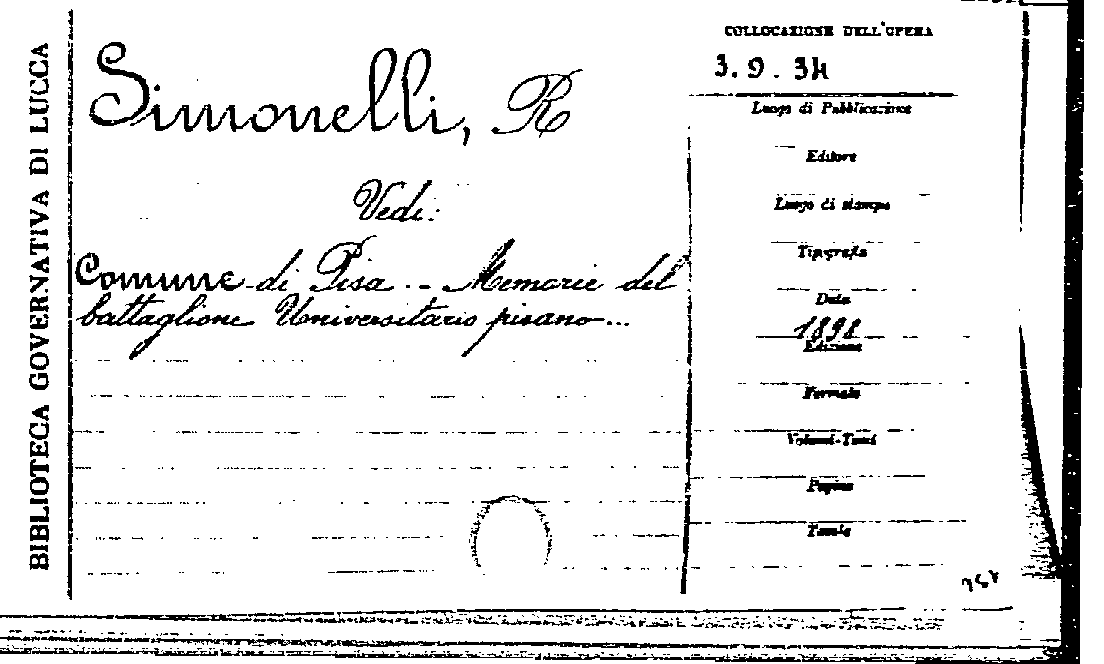 BIBLIOTECA GOVERNATIVA DI LUCCA
Simonelli, R
Vedi:
Comune di Pisa .. - Memorie del
battaglione Universitario pisano...
COLLOCAZIONE DELL'OPERA
3. 9. 34
Luogo di Pubblicazione
Editore
Luogo di stampa
Tipografia
Data
1898
Edizione
Formato
Volumi-Tomi
Pagine
Tavole